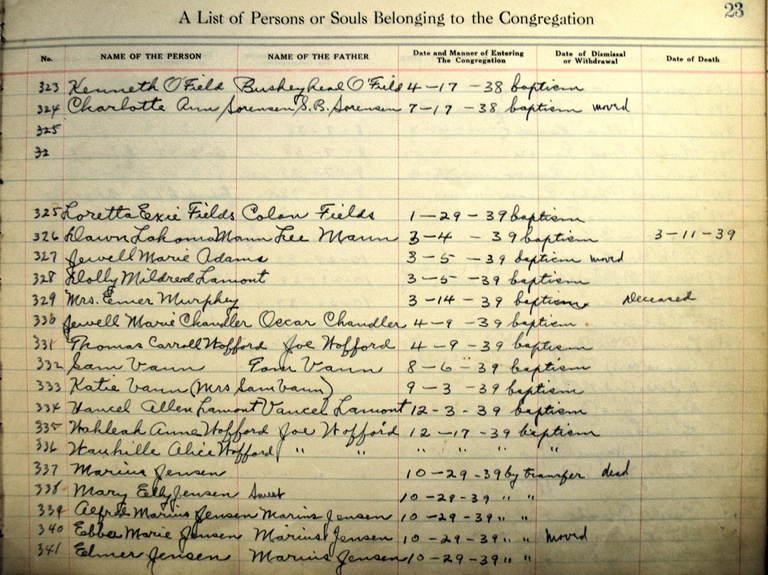 23
A List of Persons or Souls Belonging to the Congregation
No. NAME OF THE PERSON NAME OF THE FATHER Date and Manner of Entering The Congregation Date of Dismissal or Withdrawal Date of Death
323 Kenneth O'Field Busheyhead O'Field 4-17-38 baptism
324 Charlotte Ann Sorensen S.B. Sorensen 7-17-38 baptism moved
325
32
325 Loretta Exie Fields Colon Fields 1-29-39 baptism
326 Dawn Lahoma Mann Lee Mann 3-4-39 baptism 3-11-39
327 Jewell Marie Adams 3-5-39 baptism moved
328 Dolly Mildred Lamont 3-5-39 baptism
329 Mrs. Emer Murphey 3-14-39 baptism Deceased
330 Jewell Marie Chandler Oscar Chandler 4-9-39 baptism
331 Thomas Carroll Wofford Joe Wofford 4-9-39 baptism
332 Sam Vann Tom Vann 8-6-39 baptism
333 Katie Vann (Mrs Sam Vann) 9-3-39 baptism
334 Vancel Allen Lamont Vancel Lamont 12-3-39 baptism
335 Wahleah Anne Wofford Joe Wofford 12-17-39 baptism
336 Wauhille Alice Wofford " " " " " "
337 Marius Jensen 10-29-39 by transfer dead
338 Mary Elly Jensen Sweet 10-29-39 " "
339 Alfred Marius Jensen Marius Jensen 10-29-39 " "
340 Ebba Marie Jensen Marius Jensen 10-29-39 " " moved
341 Elmer Jensen Marius Jensen 10-29-39 " "